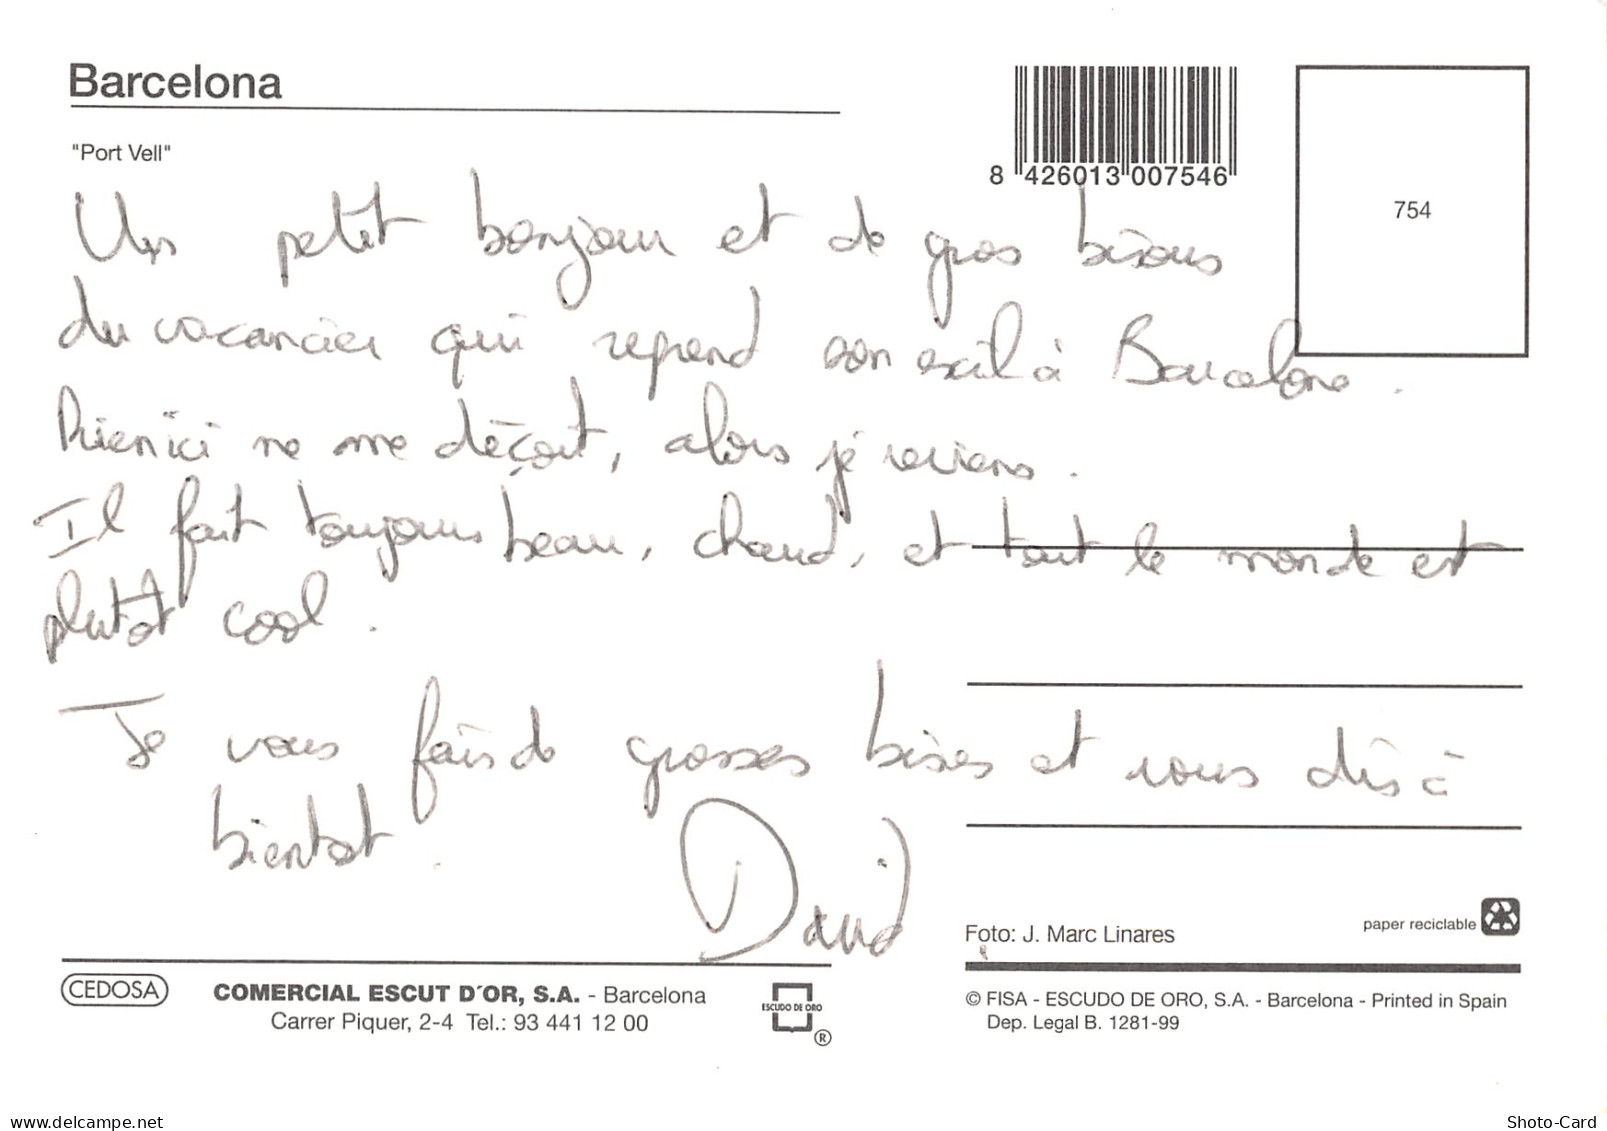 Barcelona
"Port Vell"
8 426013 007546
754
Un petit bonjour et de gros bisous
du vacancier qui reprend son exil à Barcelone.
Rien ici ne me déçoit, alors j'y reviens.
Il fait toujours beau, chaud, et tout le monde est
plutôt cool.
Je vous fais de grosses bises et vous dis à
bientot.
David
Foto: J. Marc Linares
paper reciclable
CEDOSA
COMERCIAL ESCUT D'OR, S.A. - Barcelona
Carrer Piquer, 2-4 Tel.: 93 441 12 00
ESCUDO DE ORO
®
© FISA - ESCUDO DE ORO, S.A. - Barcelona - Printed in Spain
Dep. Legal B. 1281-99
delcampe.net
Shoto-Card